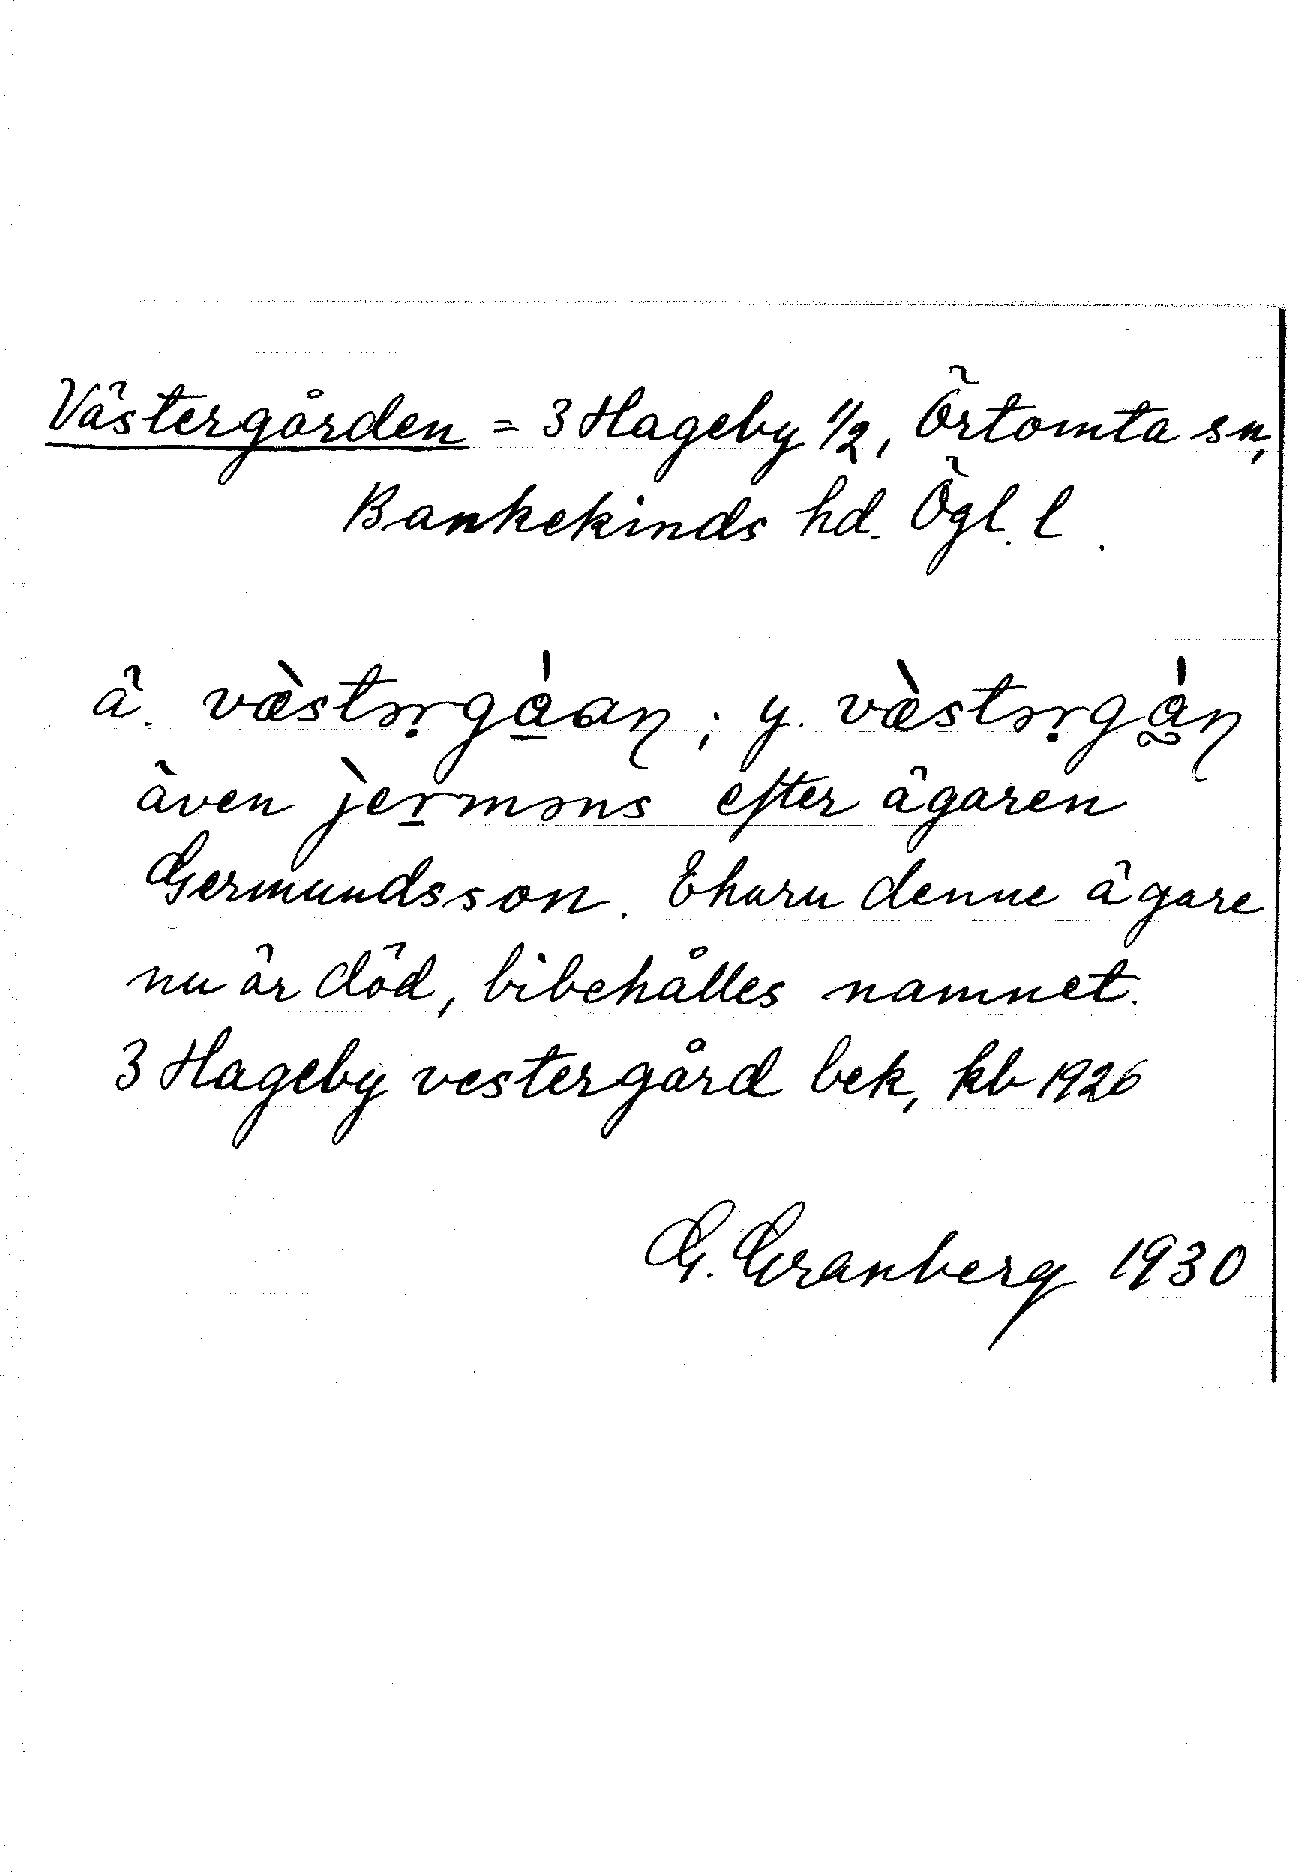 Västergården = 3 Hageby 1/2, Örtomta sn,
Bankekinds hd. Ögl. l.
ä. væ̀stər̥gáan; y. væ̀stər̥gán
även jèrməns efter ägaren
Germundsson. Ehuru denne ägare
nu är död, bibehålles namnet.
3 Hageby vestergård bek, kb 1926
G. Granberg 1930